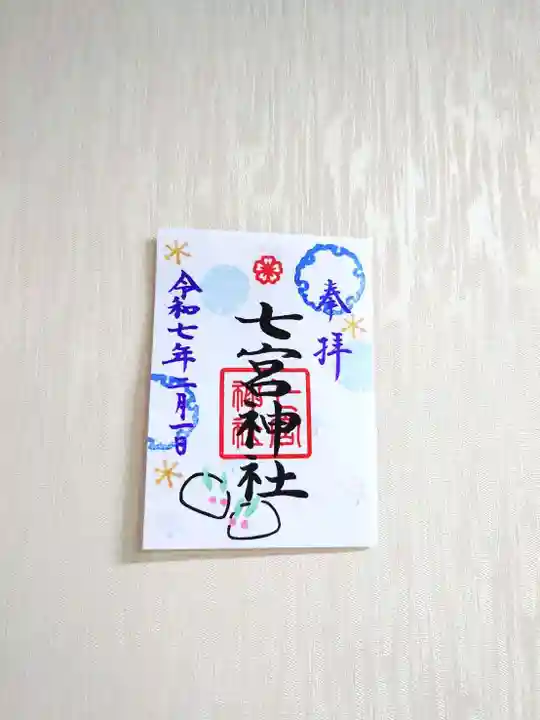 奉拝
七宮神社
七宮神社
令和七年二月一日